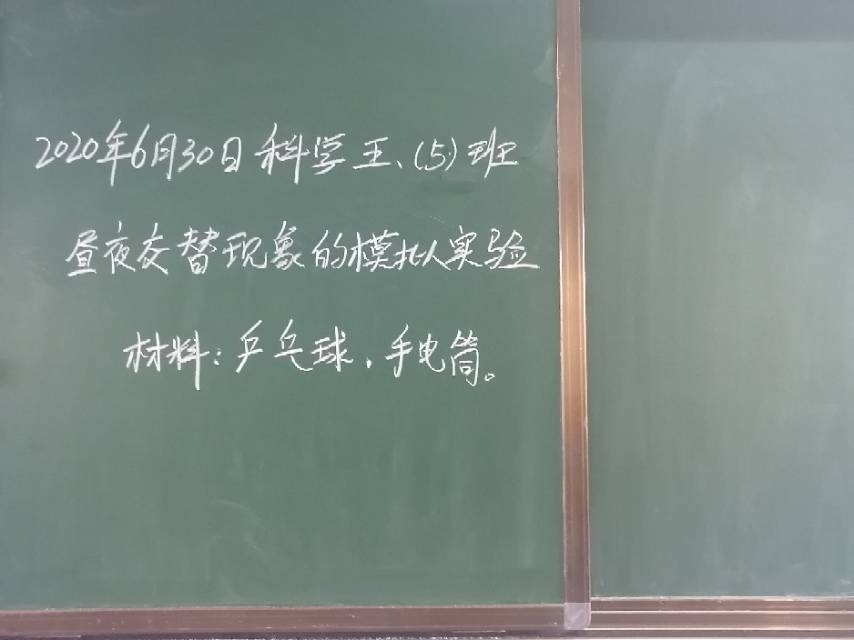 2020年6月30日科学王、(5)班
昼夜交替现象的模拟实验
材料:乒乓球,手电筒。